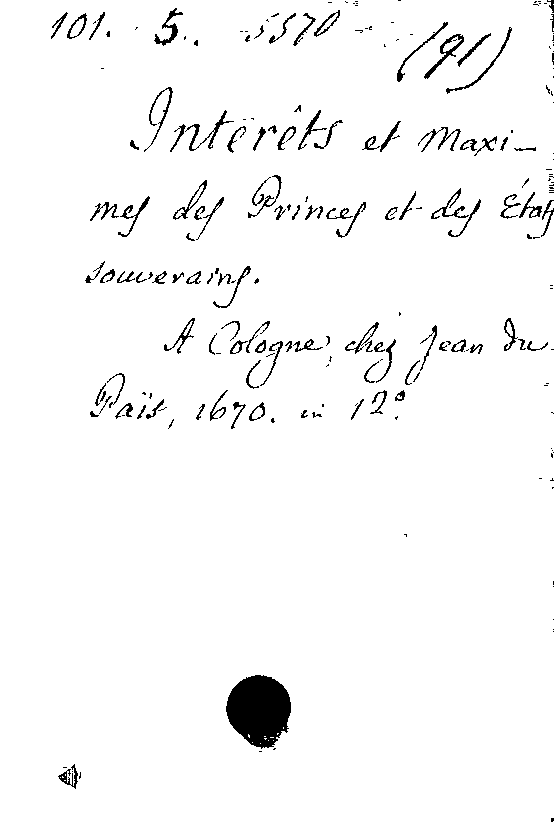 101. 5. 5570 (91)
Interêts et Maxi-
mes des Princes et des États
souverains.
A Cologne, chez Jean du
Païs, 1670. in 12º.